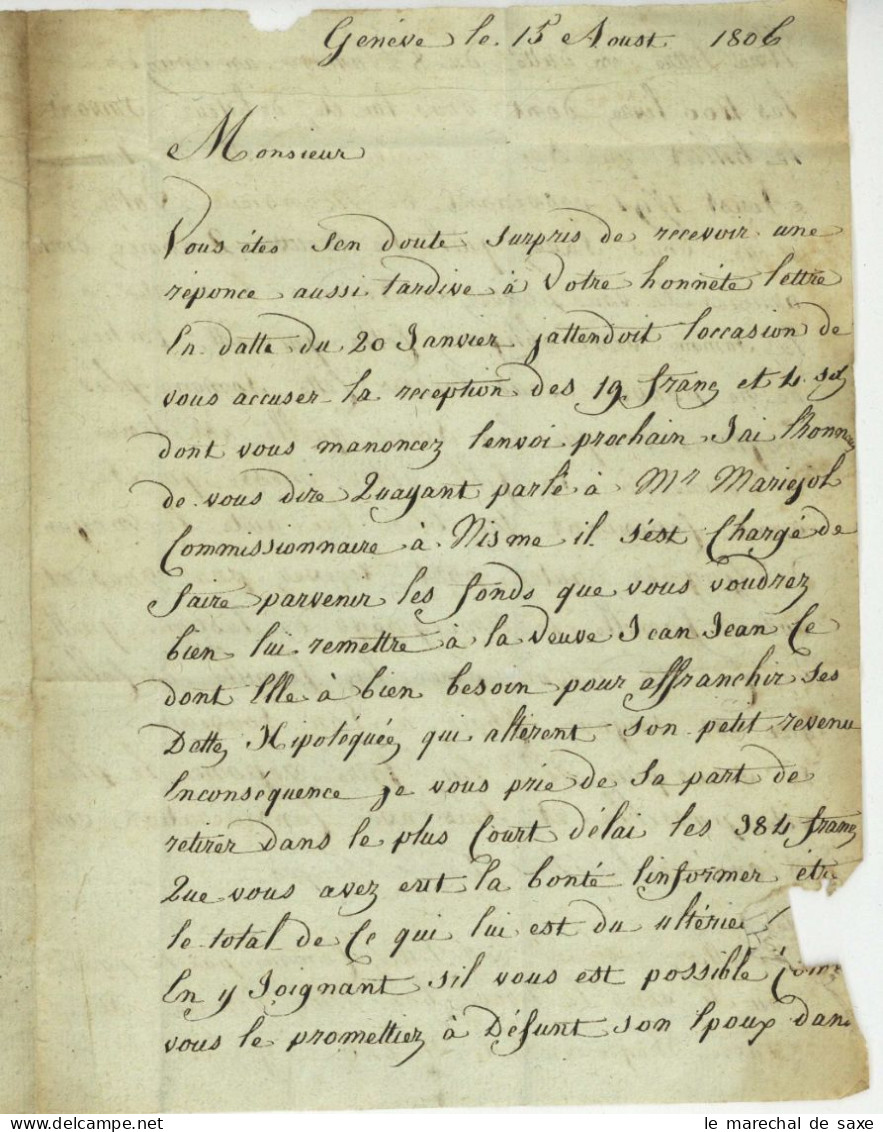 Genéve le. 15 Aoust 1806
Monsieur
Vous étes Sen doute surpris de recevoir une
réponce aussi tardive à Votre honnéte lettre
En datte du 20 Janvier jattendoit loccasion de
vous accuser la reception des 19. franc et 4. s
dont vous manoncez lenvoi prochain Jai lhonneu
de vous dire Quayant parlé à Mr Mariejol
Commissionnaire à Nisme il s'est Chargé de
faire parvenir les fonds que vous voudréz
bien lui remettre à la Veuve Jean Jean Ce
dont Elle à bien besoin pour affranchir ses
Dattes Hipotéquées qui altérent son petit revenu
Enconséquence je vous prie de sa part de
retirer dans le plus Court délai les 384 francs
Que vous avez eut la bonté linformer étr
le total de Ce qui lui est du ultérie
En y Joignant sil vous est possible
vous le promettiez à Défunt son Epoux dan
le marechal de saxe